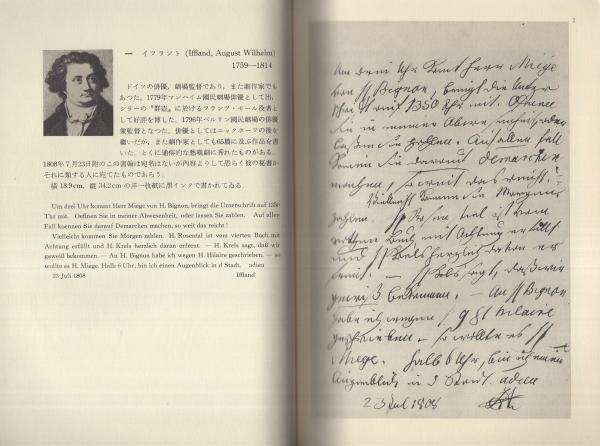 一 イフラント (Iffland, August Wilhelm)
1759—1814
ドイツの俳優，劇場監督であり，また劇作家でも
あつた。1779年マンハイム國民劇場俳優として出，
シラーの『群盗』に於けるフランツ・モール役者と
して好評を博した。1796年ベルリン國民劇場の俳優
兼監督となつた。俳優としてはエックホーフの後を
繼いだが，また劇作家としても65篇に及ぶ作品を書
いた。とくに通俗的な悲喜劇に秀れたものがある。
1808年7月23日附のこの書翰は宛名はないが内容よりして恐らく彼の秘書か
それに類する人に宛てたものであらう。
横 18.9cm, 縦 34.2cm の洋一枚紙に黒インクで書かれてゐる。
Um drei Uhr kommt Herr Miege von H. Bignon, bringt die Unterschrift auf 1350
Thr mit. Oeffnen Sie in meiner Abwesenheit, oder lassen Sie zahlen. Auf allen
Fall koennen Sie darauf Demarchen machen, so weit das reicht!
Vielleicht kommen Sie Morgen zahlen. H. Rosentel ist vom vierten Buch mit
Achtung erfüllt und H. Krels herzlich daran erfreut. — H. Krels sagt, daß wir
geweiß bekommen. — An H. Bignon habe ich wegen H. Hilaire geschrieben. — so
wollte es H. Miege. Halb 6 Uhr, bin ich einen Augenblick in d Stadt. adien
23 Juli 1808 Iffland
1
Um drei Uhr kommt Herr Miege
von H Bignon, bringt die Unter
schrift auf 1350 Thr mit. Oeffnen
Sie in meiner Abwesenheit, oder
lassen Sie zahlen. Auf allen Fall
koennen Sie darauf demarchen
machen, so weit das reicht!
Vielleicht kommen Sie Morgen
zahlen. H Rosentel ist vom
vierten Buch mit Achtung erfüllt
und H Krels herzlich daran er
freut. — H Krels sagt, daß wir
geweiß bekommen. — An H Bignon
habe ich wegen H St Hilaire
geschrieben. — so wollte es H
Miege. Halb 6 Uhr, bin ich einen
Augenblick in d Stadt. adien
23 Jul 1808